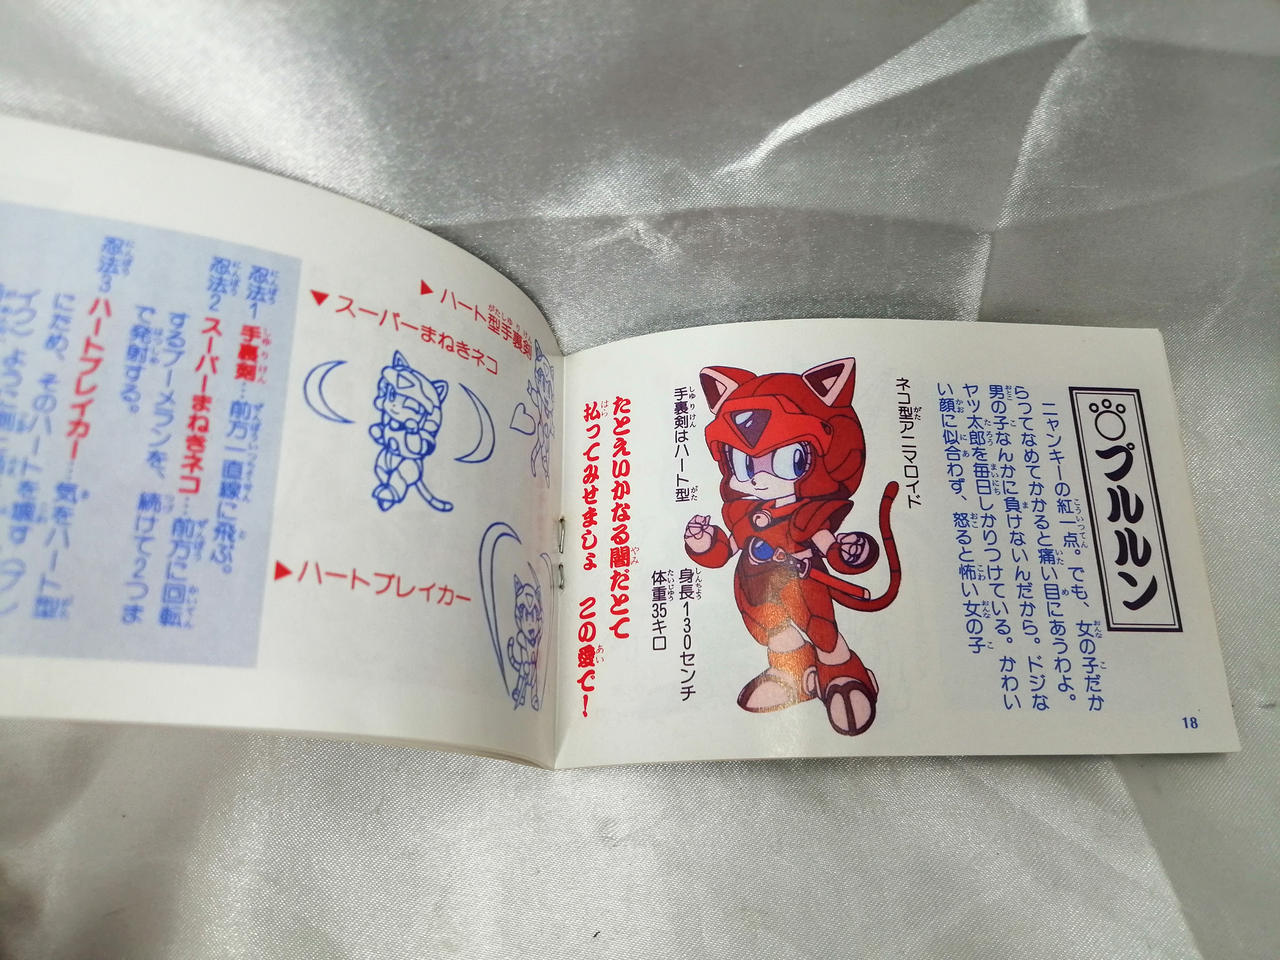 プルルン
ニャンキーの紅一点。でも、女の子だか
らってなめてかかると痛い目にあうわよ。
男の子なんかに負けないんだから。ドジな
ヤッ太郎を毎日しかりつけている。かわい
い顔に似合わず、怒ると怖い女の子
ネコ型アニマロイド
手裏剣はハート型
身長130センチ
体重35キロ
たとえいかなる闇だとて
払ってみせましょ この愛で!
18
▶ハート型手裏剣
▼スーパーまねきネコ
▶ハートブレイカー
忍法1 手裏剣…前方一直線に飛ぶ。
忍法2 スーパーまねきネコ…前方に回転
するブーメランを、続けて2つま
で発射する。
忍法3 ハートブレイカー…気をハート型
にため、そのハートを壊す